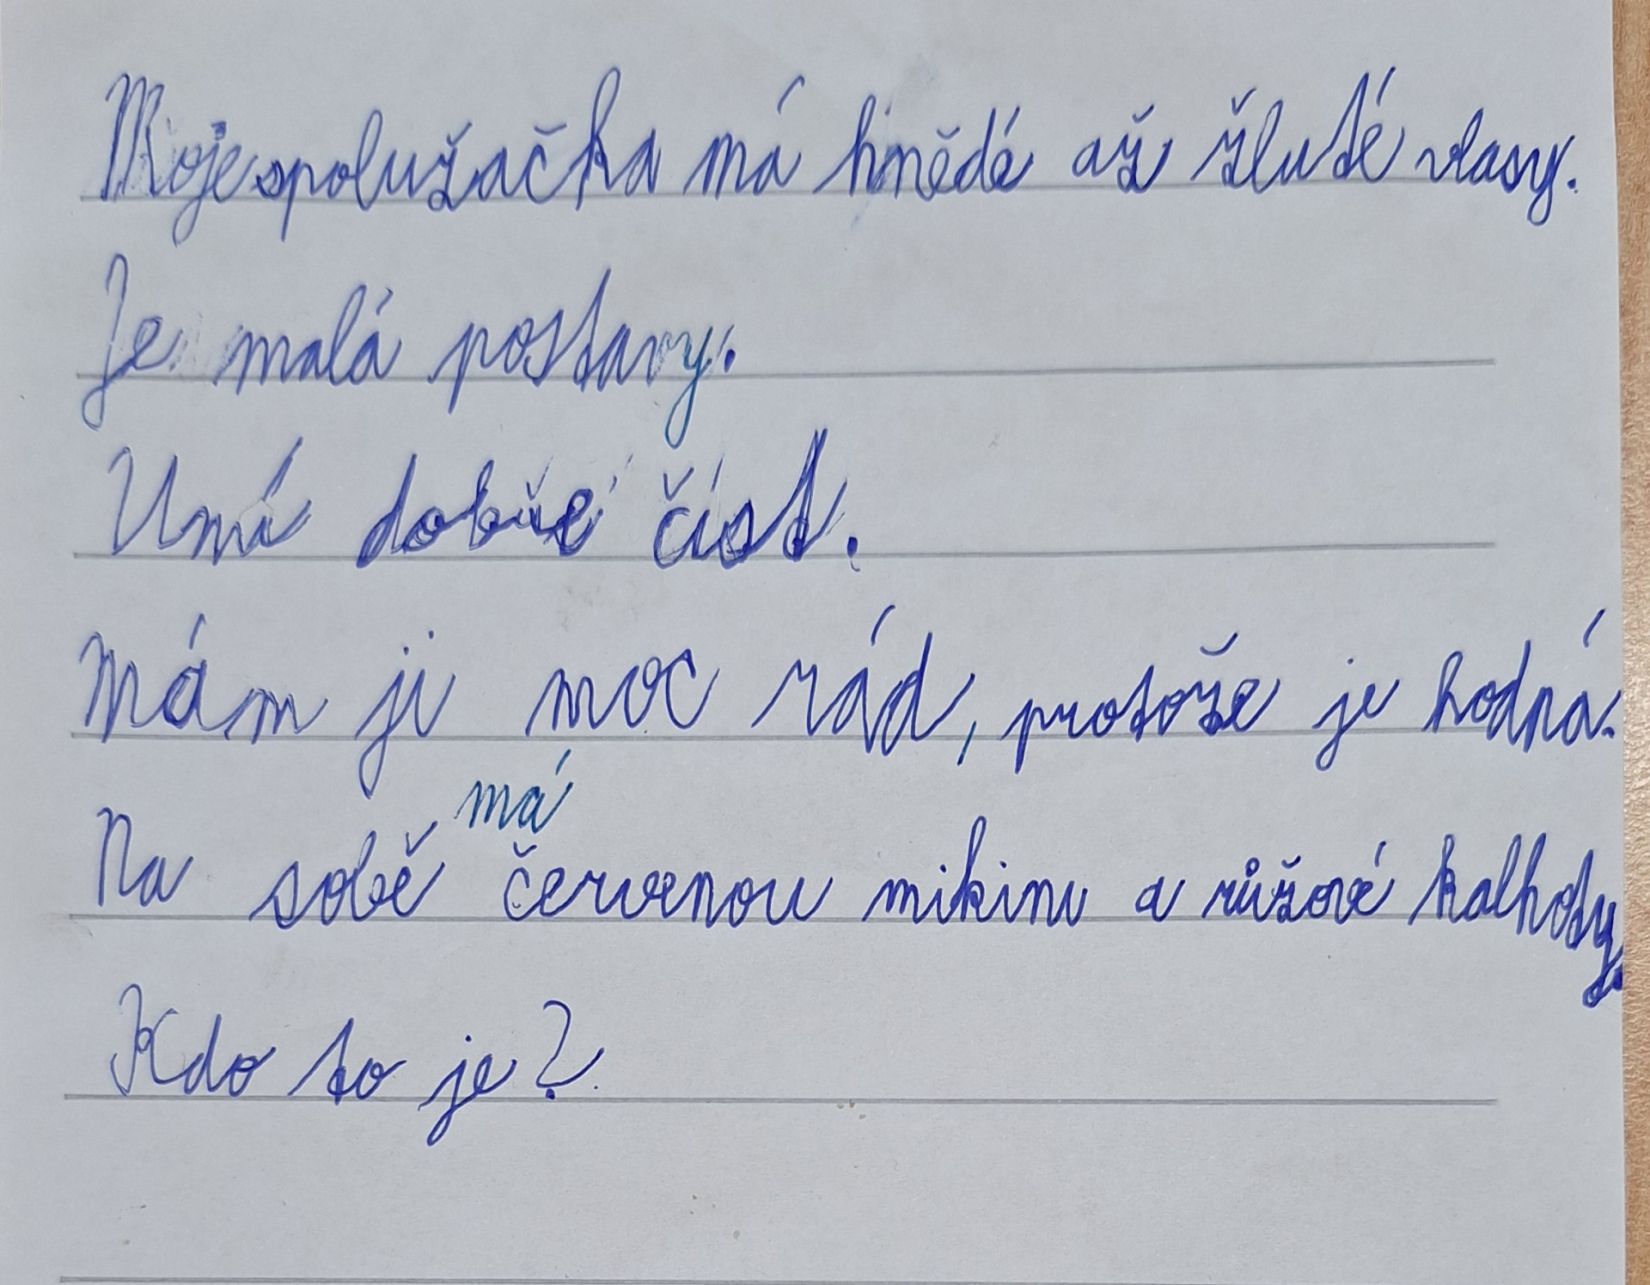 Moje spolužačka má hnědé až žluté vlasy.
Je malá postavy.
Umí dobře číst.
Mám ji moc rád, protože je hodná.
má
Na sobě červenou mikinu a růžové kalhoty.
Kdo to je?